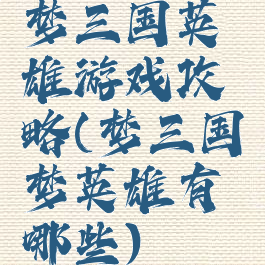 梦三国英
雄游戏攻
略(梦三国
梦英雄有
哪些)